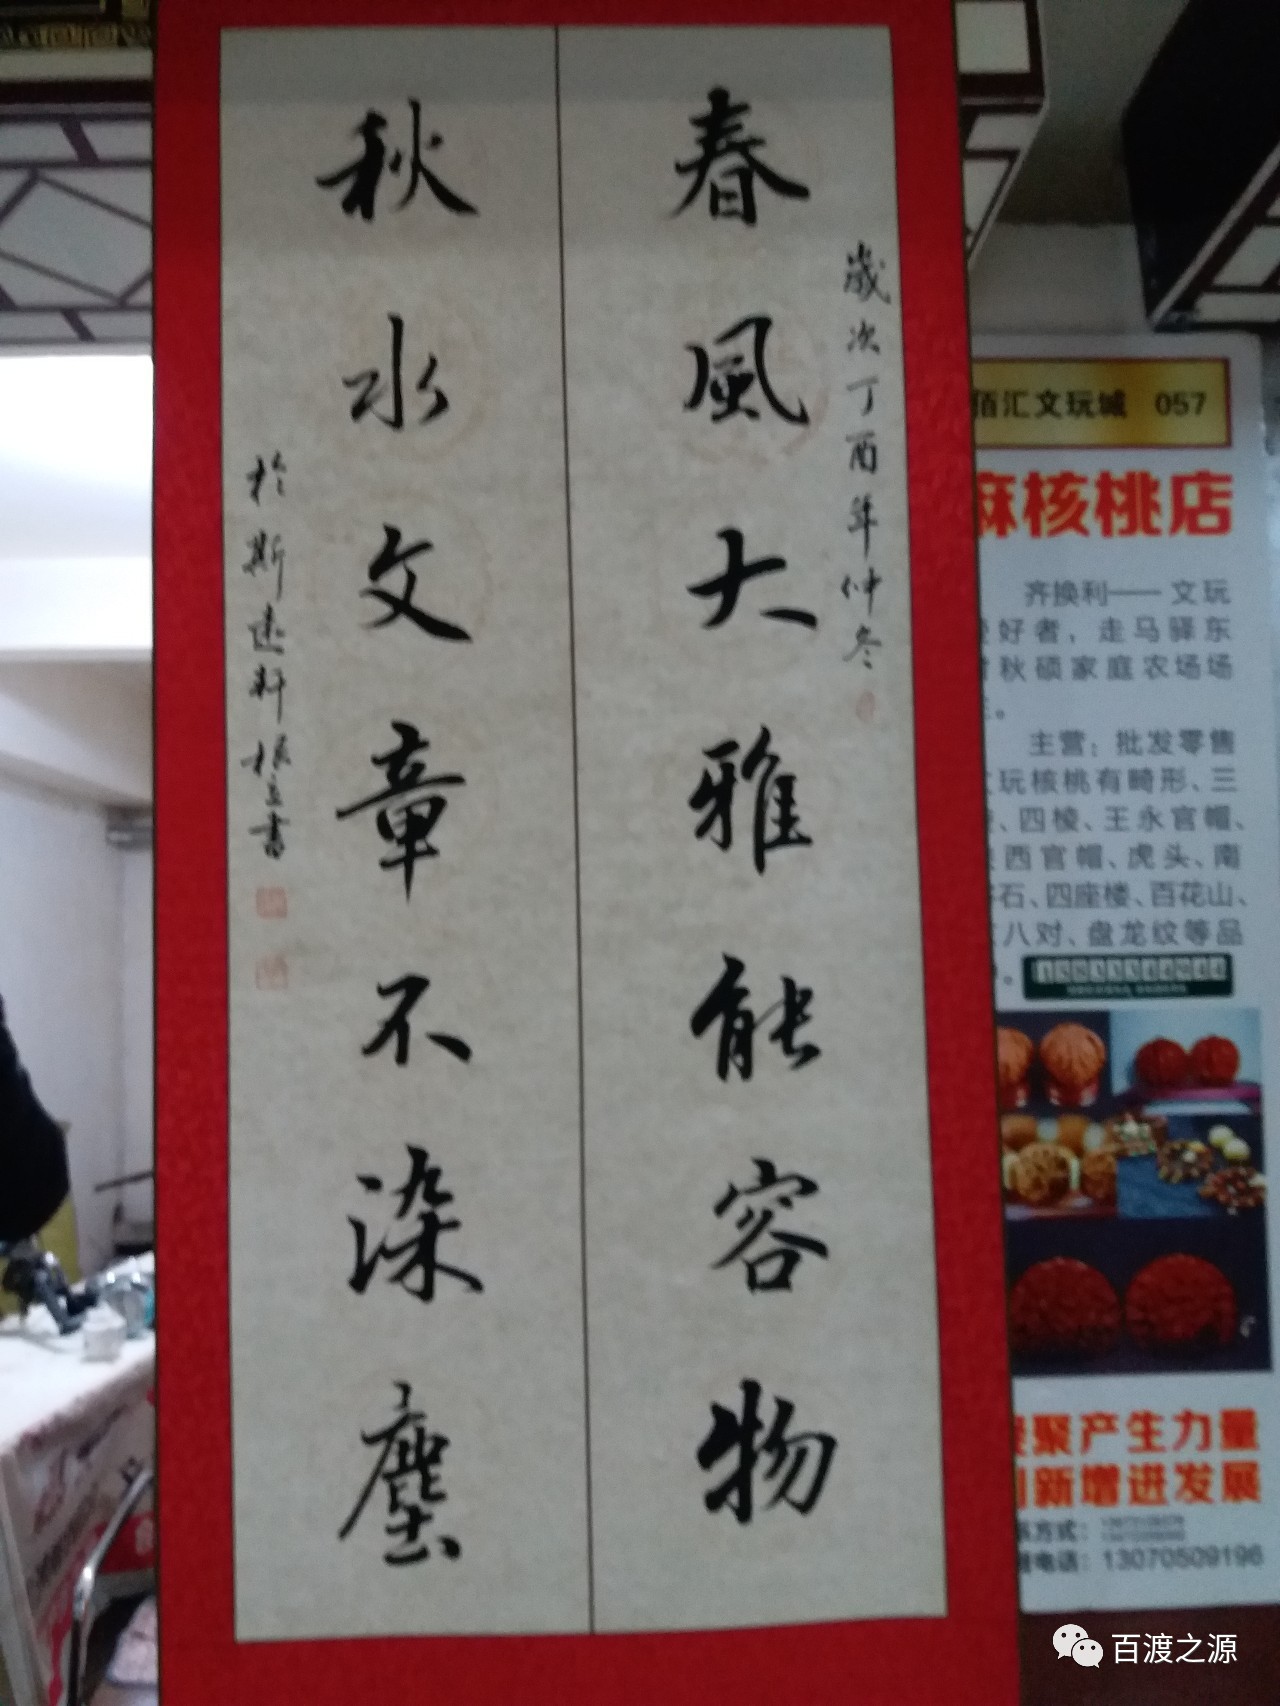 春風大雅能容物
歲次丁酉年仲冬
秋水文章不染塵
於斯遠軒振立書
佰汇文玩城 057
麻核桃店
齐换利——文玩
爱好者，走马驿东
村秋硕家庭农场场
主。
主营：批发零售
文玩核桃有畸形、三
棱、四棱、王永官帽、
西官帽、虎头、南
石、四座楼、百花山、
八对、盘龙纹等品
聚产生力量
创新增进发展
联系方式：
电话：13070509196
百渡之源